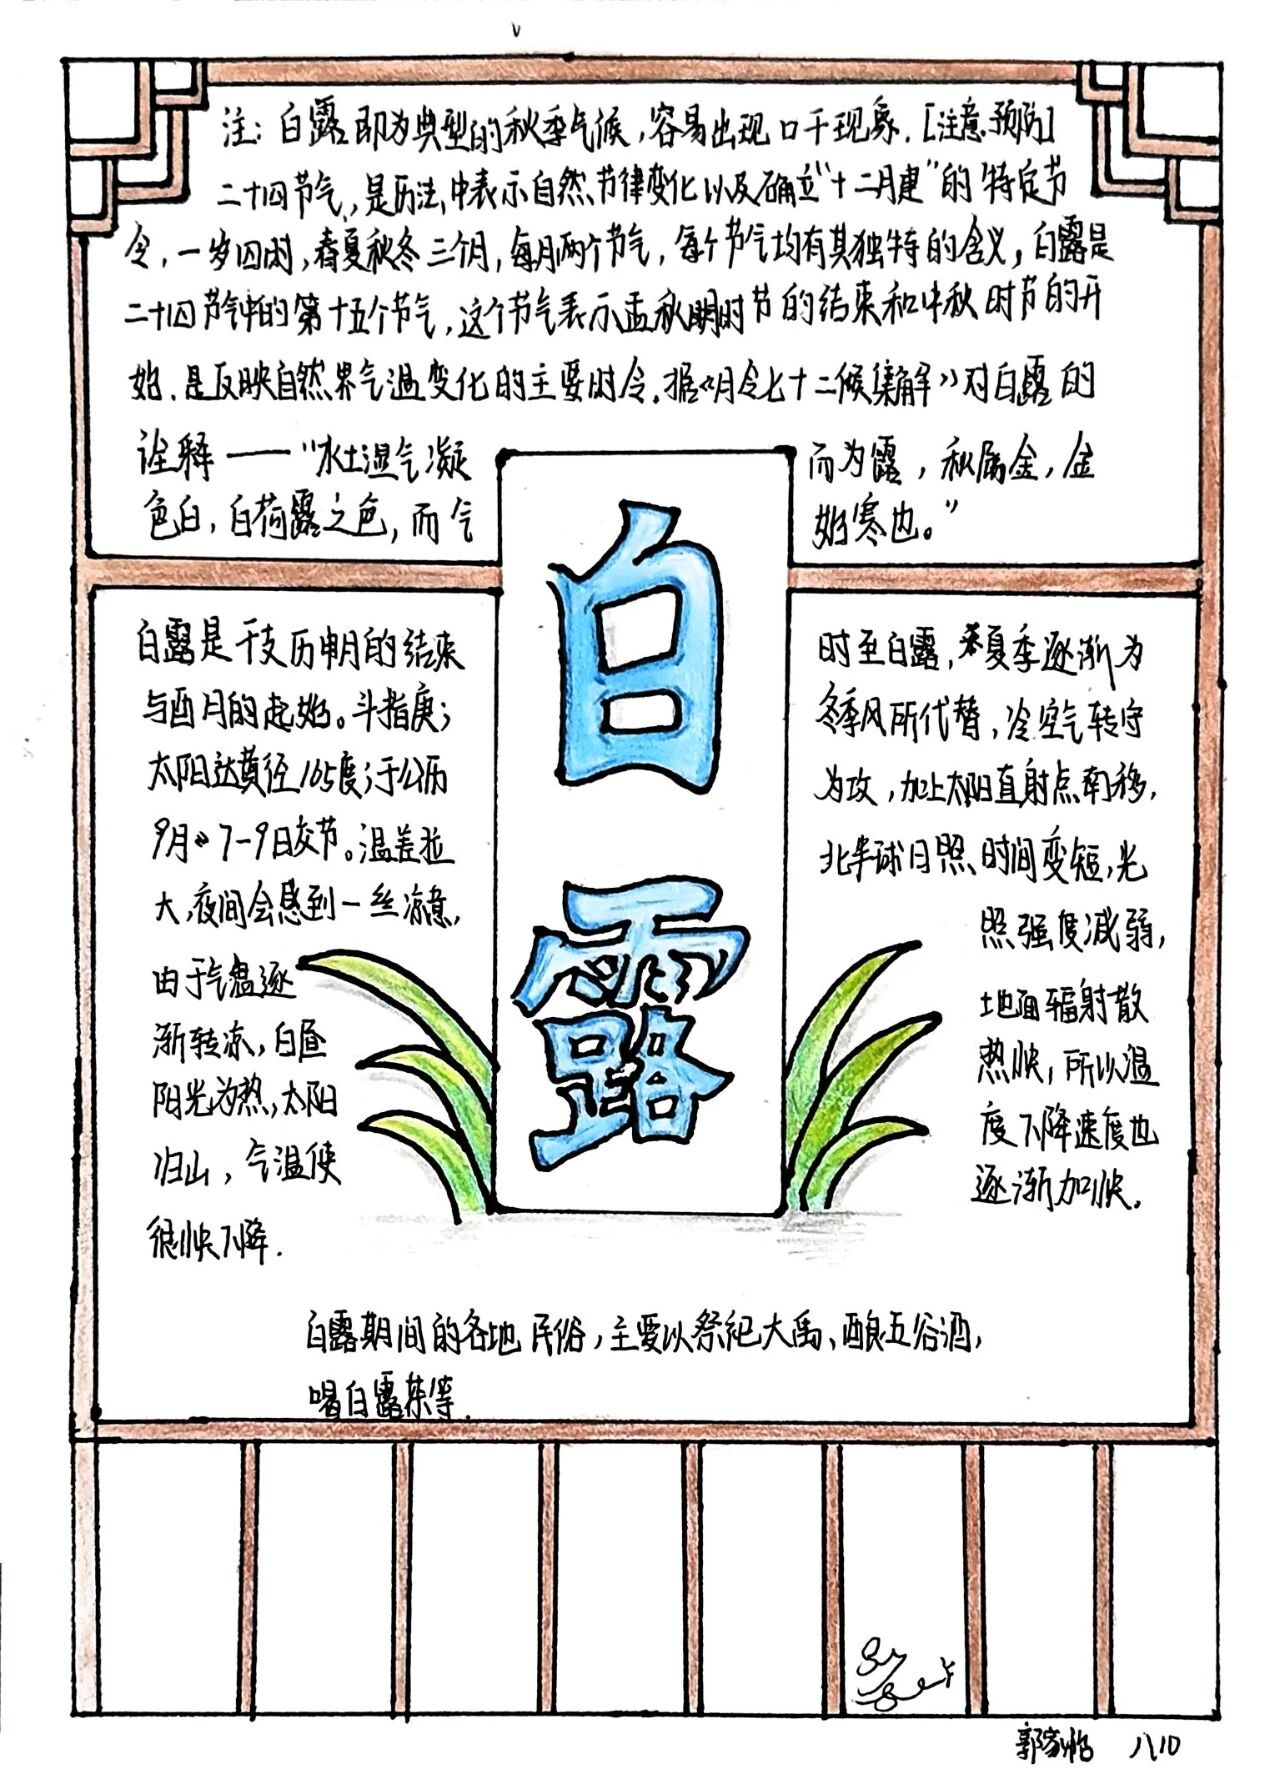 注：白露即为典型的秋季气候，容易出现口干现象.［注意预防］
二十四节气，是历法中表示自然节律变化以及确立“十二月建”的特定节
令，一岁四时，春夏秋冬三个月，每月两个节气，每个节气均有其独特的含义，白露是
二十四节气中的第十五个节气，这个节气表示孟秋时节的结束和仲秋时节的开
始.是反映自然界气温变化的主要时令.据《月令七十二候集解》对白露的
诠释——“水土湿气凝而为露，秋属金，金
色白，白荷露之色，而气始寒也。”
白
露
白露是干支历申月的结束
与酉月的起始。斗指庚；
太阳达黄经165度；于公历
9月7-9日交节。温差拉
大，夜间会感到一丝凉意，
由于气温逐
渐转凉，白昼
阳光为热，太阳
归山，气温便
很快下降.
时至白露，夏季逐渐为
冬季风所代替，冷空气转守
为攻，加上太阳直射点南移，
北半球日照时间变短，光
照强度减弱，
地面辐射散
热快，所以温
度下降速度也
逐渐加快.
白露期间的各地民俗，主要以祭祀大禹、酿五谷酒，
喝白露茶等.
郭家怡 八10